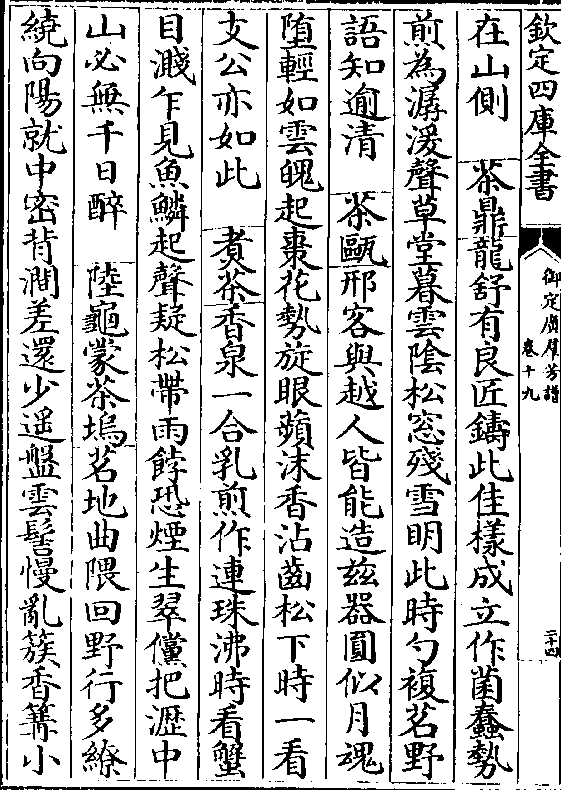 欽定四庫全書
御定廣羣芳譜
卷十九
二十四
在山側　茶鼎龍舒有良匠鑄此佳樣成立作菌蠢勢
煎為潺湲聲草堂暮雲陰松窓殘雪明此時勺複茗野
語知逾清　茶甌邢客與越人皆能造兹器圓似月魂
墮輕如雲魄起棗花勢旋眼蘋沫香沾齒松下時一看
支公亦如此　煮茶香泉一合乳煎作連珠沸時看蟹
目濺乍見魚鱗起聲疑松帶雨餑恐煙生翠儻把瀝中
山必無千日醉　陸龜蒙茶塢茗地曲隈回野行多繚
繞向陽就中密背澗差還少遥盤雲髻慢亂簇香篝小